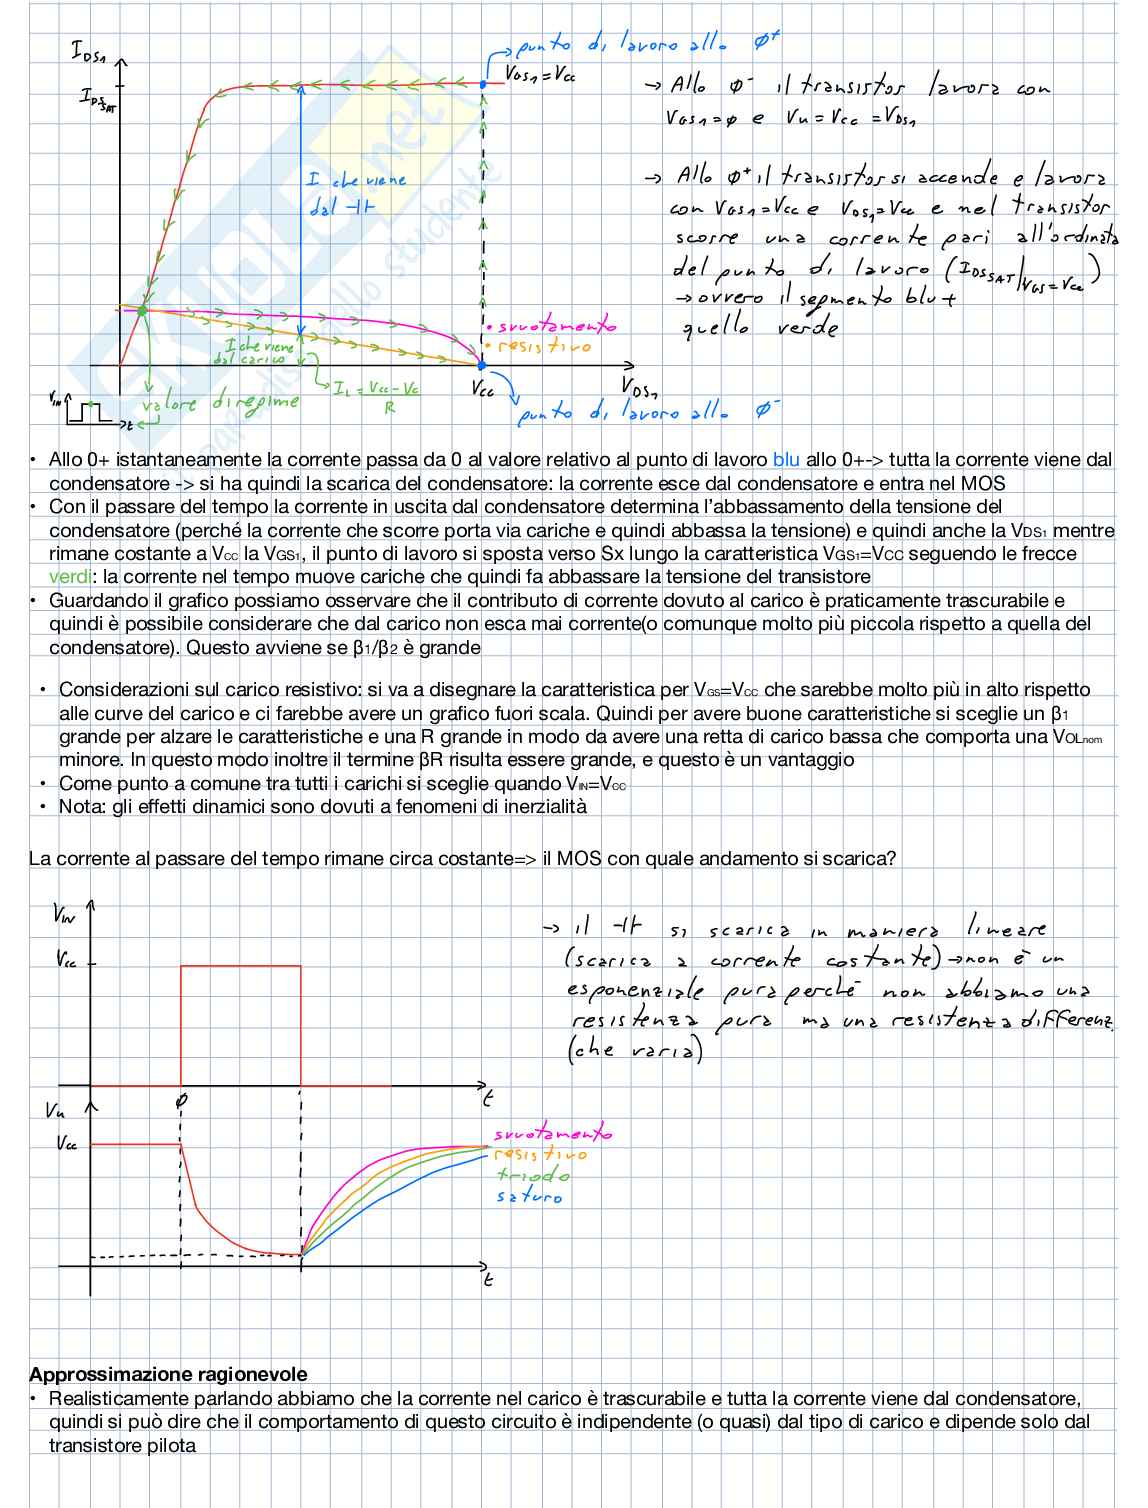 I_DS1
I_DS_SAT
punto di lavoro allo φ⁺
V_GS1 = V_CC
I che viene
dal ⊣⊢
• svuotamento
• resistivo
I che viene
dal carico
I_L = (V_CC − V_C) / R
V_CC
V_DS1
V_IN
t
valore di regime
punto di lavoro allo φ⁻
→ Allo φ⁻ il transistor lavora con
V_GS1 = φ e Vu = V_CC = V_DS1
→ Allo φ⁺ il transistor si accende e lavora
con V_GS1 = V_CC e V_DS1 = V_CC e nel transistor
scorre una corrente pari all'ordinata
del punto di lavoro (I_DS_SAT|V_GS = V_CC)
→ ovvero il segmento blu +
quello verde
SKUOLA.net
paradiso dello studente
• Allo 0+ istantaneamente la corrente passa da 0 al valore relativo al punto di lavoro blu allo 0+--> tutta la corrente viene dal
condensatore -> si ha quindi la scarica del condensatore: la corrente esce dal condensatore e entra nel MOS
• Con il passare del tempo la corrente in uscita dal condensatore determina l'abbassamento della tensione del
condensatore (perché la corrente che scorre porta via cariche e quindi abbassa la tensione) e quindi anche la VDS1 mentre
rimane costante a VCC la VGS1, il punto di lavoro si sposta verso Sx lungo la caratteristica VGS1=VCC seguendo le frecce
verdi: la corrente nel tempo muove cariche che quindi fa abbassare la tensione del transistore
• Guardando il grafico possiamo osservare che il contributo di corrente dovuto al carico è praticamente trascurabile e
quindi è possibile considerare che dal carico non esca mai corrente(o comunque molto più piccola rispetto a quella del
condensatore). Questo avviene se β1/β2 è grande
• Considerazioni sul carico resistivo: si va a disegnare la caratteristica per VGS=VCC che sarebbe molto più in alto rispetto
alle curve del carico e ci farebbe avere un grafico fuori scala. Quindi per avere buone caratteristiche si sceglie un β1
grande per alzare le caratteristiche e una R grande in modo da avere una retta di carico bassa che comporta una VOLnom
minore. In questo modo inoltre il termine βR risulta essere grande, e questo è un vantaggio
• Come punto a comune tra tutti i carichi si sceglie quando VIN=VCC
• Nota: gli effetti dinamici sono dovuti a fenomeni di inerzialità
La corrente al passare del tempo rimane circa costante=> il MOS con quale andamento si scarica?
V_IN
V_CC
φ
t
→ il ⊣⊢ si scarica in maniera lineare
(scarica a corrente costante) → non è un
esponenziale pura perché non abbiamo una
resistenza pura ma una resistenza differenz.
(che varia)
Vu
V_CC
svuotamento
resistivo
triodo
saturo
t
Approssimazione ragionevole
• Realisticamente parlando abbiamo che la corrente nel carico è trascurabile e tutta la corrente viene dal condensatore,
quindi si può dire che il comportamento di questo circuito è indipendente (o quasi) dal tipo di carico e dipende solo dal
transistore pilota